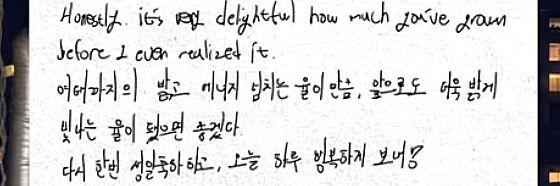 Honestly. it's very delightful how much you've grown
before I even realized it.
여태까지의 밝고 에너지 넘치는 율이만큼, 앞으로도 더욱 밝게
빛나는 율이 됐으면 좋겠다
다시 한번 생일축하하고, 오늘 하루 행복하게 보내!